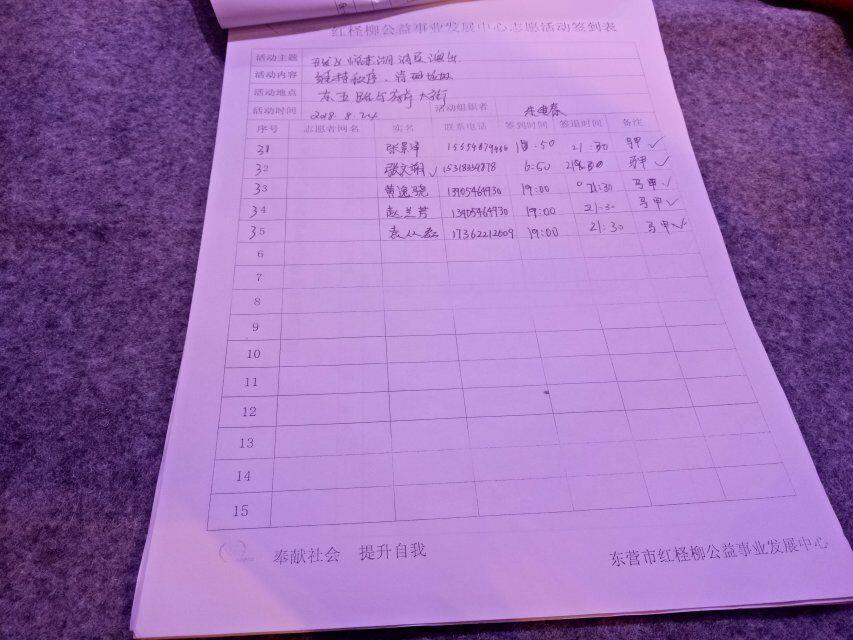 红柽柳公益事业发展中心志愿活动签到表
活动主题
活动内容 维持秩序、清理垃圾
活动地点 东五路与府前大街
活动时间 2018.8.24 活动组织者
序号 志愿者网名 实名 联系电话 签到时间 签退时间 备注
31 张景泽 21:30 马甲 ✓
32 张文娟 ✓ 6:50 马甲 ✓
33 黄逸骁 13905464930 19:00 21:30 马甲 ✓
34 赵兰芳 13905464930 19:00 21:30 马甲 ✓
35 袁从磊 17362212009 19:00 21:30 马甲 ✓
6
7
8
9
10
11
12
13
14
15
奉献社会 提升自我 东营市红柽柳公益事业发展中心